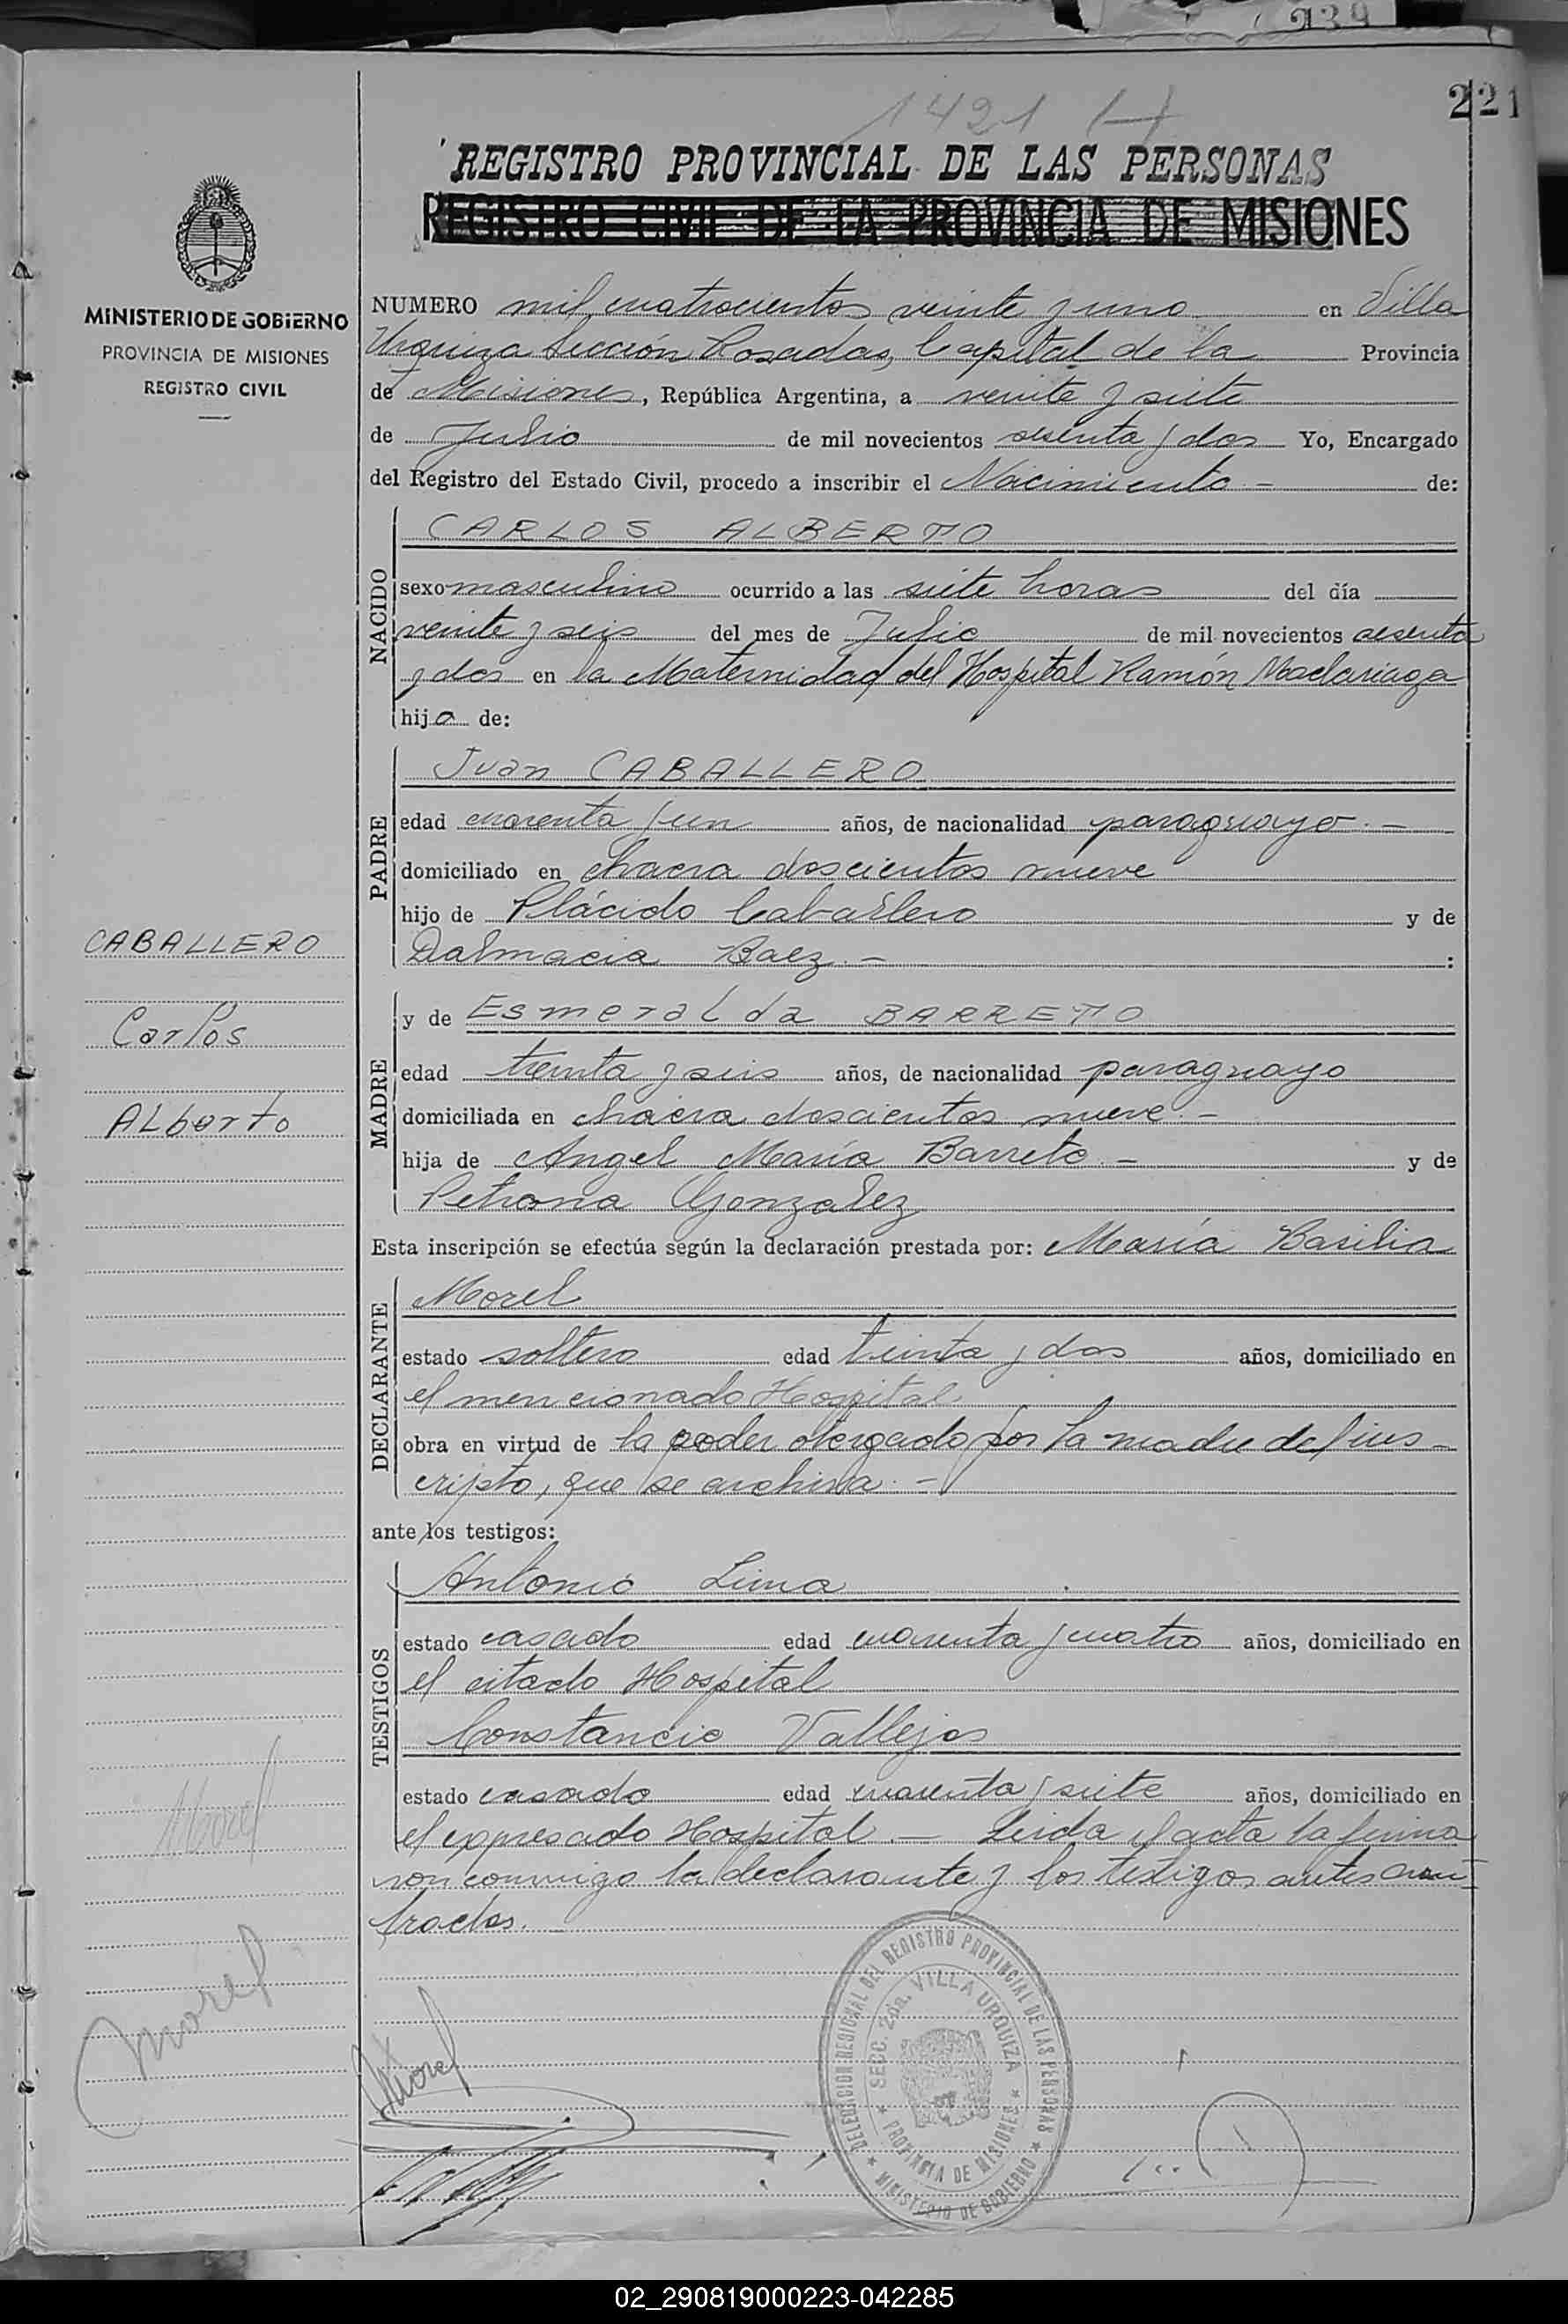 939
221
1421 H
REGISTRO PROVINCIAL DE LAS PERSONAS
REGISTRO CIVIL DE LA PROVINCIA DE MISIONES
MINISTERIO DE GOBIERNO
PROVINCIA DE MISIONES
REGISTRO CIVIL
NUMERO mil cuatrocientos veinte y uno en Villa
Urquiza Sección Posadas, Capital de la Provincia
de Misiones, República Argentina, a veinte y siete
de Julio de mil novecientos sesenta y dos Yo, Encargado
del Registro del Estado Civil, procedo a inscribir el Nacimiento - de:
NACIDO
CARLOS ALBERTO
sexo masculino ocurrido a las siete horas del día
veinte y seis del mes de Julio de mil novecientos sesenta
y dos en la Maternidad del Hospital Ramón Madariaga
hijo de:
PADRE
Juan CABALLERO
edad cuarenta y un años, de nacionalidad paraguayo. -
domiciliado en chacra doscientos nueve
hijo de Plácido Caballero y de
Dalmacia Baez. - :
CABALLERO
Carlos
Alberto
MADRE
y de Esmeralda BARRETO
edad treinta y seis años, de nacionalidad paraguayo
domiciliada en chacra doscientos nueve. -
hija de Angel María Barreto. - y de
Petrona Gonzalez
Esta inscripción se efectúa según la declaración prestada por: María Basilia
DECLARANTE
Morel
estado soltera edad treinta y dos años, domiciliado en
el mencionado Hospital
obra en virtud de la poder otorgado por la madre del ins-
cripto, que se archiva. -
ante los testigos:
TESTIGOS
Antonio Lima
estado casado edad cuarenta y cuatro años, domiciliado en
el citado Hospital
Constancio Vallejos
estado casado edad cuarenta y siete años, domiciliado en
el expresado Hospital. - Leida el acta la firma
ron conmigo la declarante y los testigos antes nom-
brados.
Morel
Morel
Morel
DELEGACION REGIONAL DEL REGISTRO PROVINCIAL DE LAS PERSONAS
SECC. 2da. VILLA URQUIZA
* PROVINCIA DE MISIONES *
* MINISTERIO DE GOBIERNO *
02_290819000223-042285